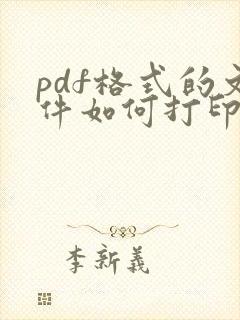 pdf格式的文
件如何打印
李新義